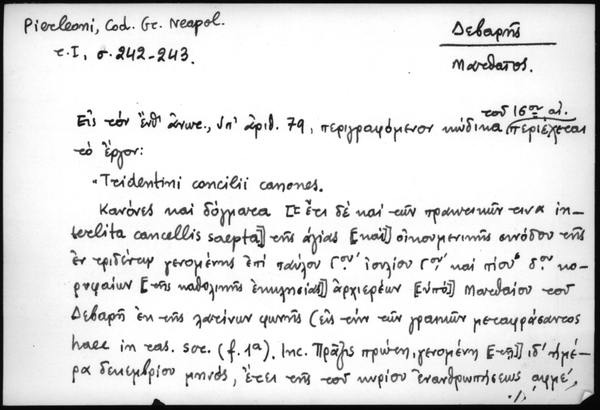 Pierleoni, Cod. Gr. Neapol.
τ. Ι, σ. 242-243.
Δεβαρῆς
Ματθαῖος.
τοῦ 16ου αἰ.
Εἰς τόν ἔνθ' ἄνωτ., ὑπ' ἀριθ. 79, περιγραφόμενον κώδικα περιέχεται
τό ἔργον:
"Tridentini concilii canones.
Κανόνες καί δόγματα [= ἔτι δέ καί τῶν πρακτικῶν τινα in-
terlita cancellis saepta]] τῆς ἁγίας [καί]] οἰκουμενικῆς συνόδου τῆς
ἐν τριδέντῳ γενομένης ἐπί παύλου Γου ἰουλίου Γου καί πίου δου κο-
ρυφαίων [τῆς καθολικῆς ἐκκλησίας]] ἀρχιερέων [ὑπό]] Ματθαίου τοῦ
Δεβαρῆ ἐκ τῆς λατίνων φωνῆς (εἰς τήν τῶν γραικῶν μεταφράσαντος
haec in ras. scr. (f. 1ª). Inc. Πρᾶξις πρώτη, γενομένη [τῇ]] ιδ' ἡμέ-
ρᾳ δεκεμβρίου μηνός, ἔτει τῆς τοῦ κυρίου ἐνανθρωπήσεως αφμε',
./.